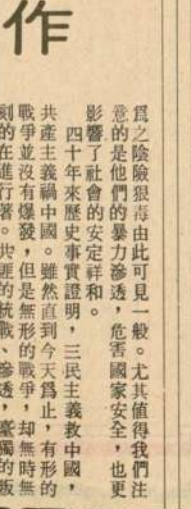 作
為之陰險狠毒由此可見一般。尤其值得我們注
意的是他們的暴力滲透，危害國家安全，也更
影響了社會的安定祥和。
四十年來歷史事實證明，三民主義救中國，
共產主義禍中國。雖然直到今天為止，有形的
戰爭並沒有爆發，但是無形的戰爭，却無時無
刻的在進行著。共匪的統戰、滲透，臺獨的叛